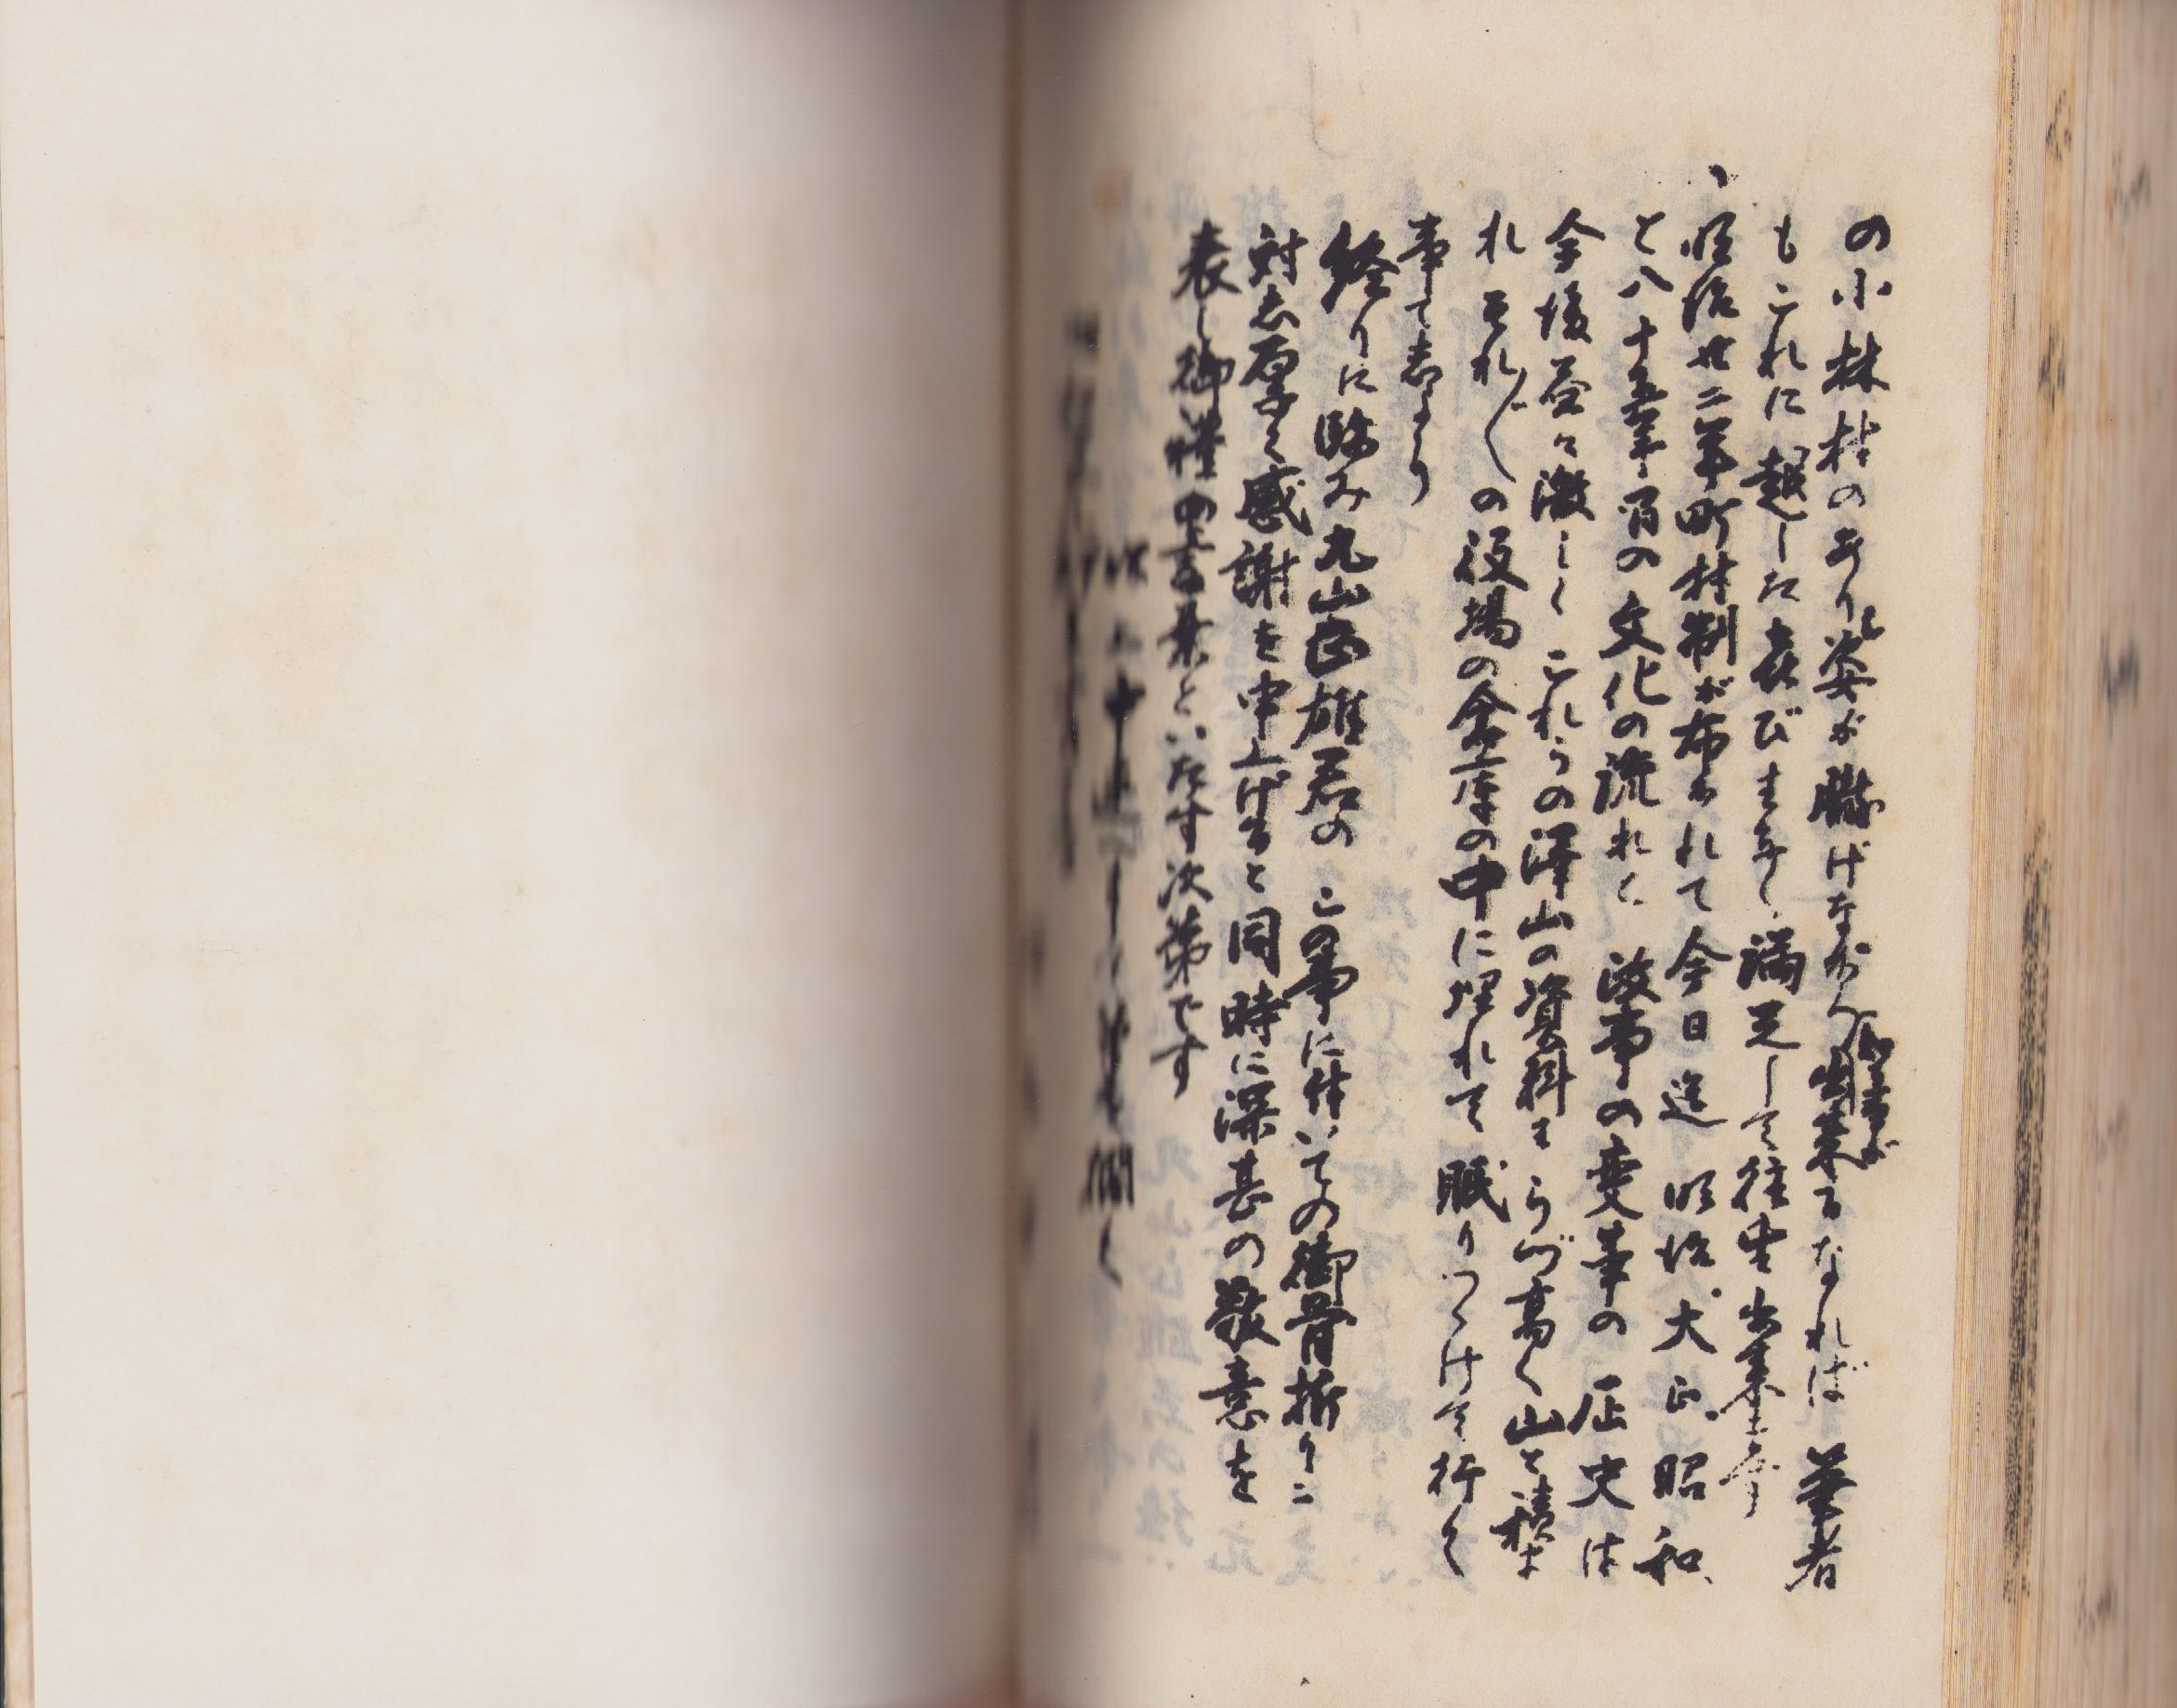 の小林村のあり姿が朧げながら出来るなれば 筆者
もこれに越した喜びまなく満足して往生出来ます
明治廿二年町村制が布かれて今日迄 明治、大正、昭和、
と八十五年肖の文化の流れに 政事の変革の歴史は
今後益々激しく これらの澤山の資料も うず高く山と積ま
れ それ〲の役場の倉庫の中に埋れて 眠りつゞけて行く
事でしょう
終りに臨み丸山正雄君の この事に付いての御骨折りに
対し厚く感謝を申上げると同時に深甚の敬意を
表し御禮の言葉といたす次第です